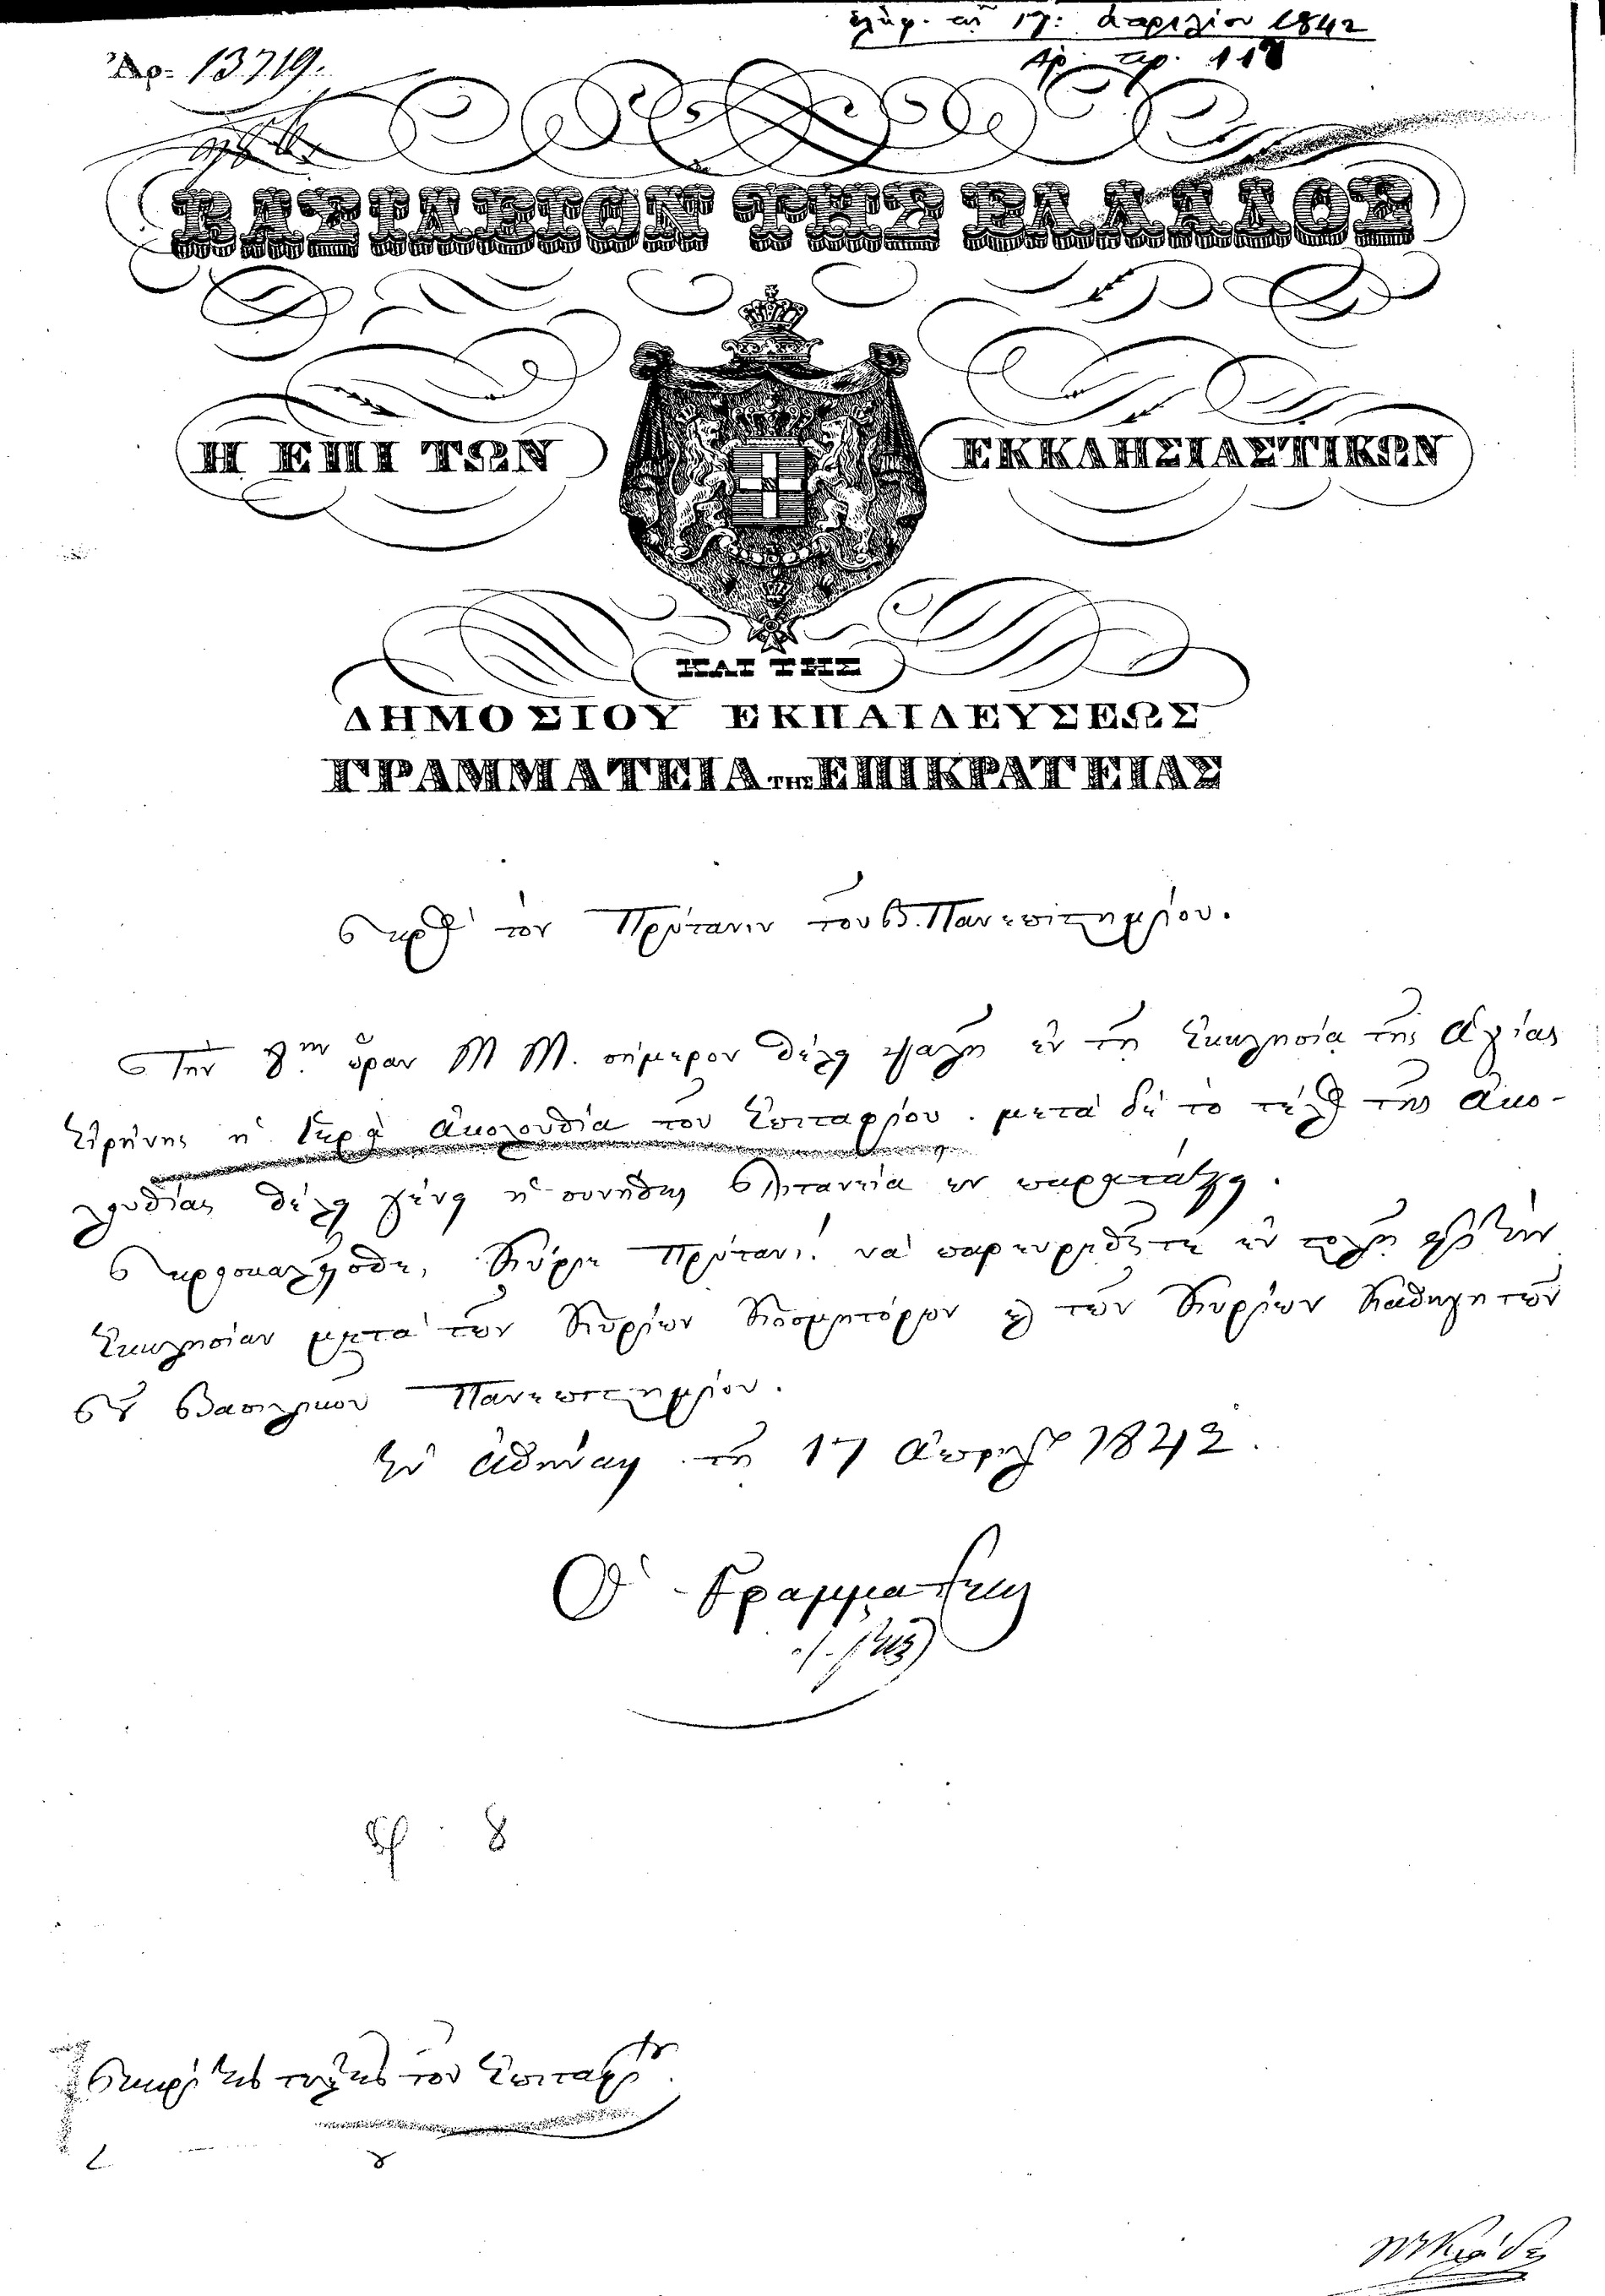 ἐλήφ. τῇ 17: Ἀπριλίου 1842
Ἀρ. πρ. 118
Ἀρ: 13719.
ΒΑΣΙΛΕΙΟΝ ΤΗΣ ΕΛΛΑΔΟΣ
Η ΕΠΙ ΤΩΝ ΕΚΚΛΗΣΙΑΣΤΙΚΩΝ
ΚΑΙ ΤΗΣ
ΔΗΜΟΣΙΟΥ ΕΚΠΑΙΔΕΥΣΕΩΣ
ΓΡΑΜΜΑΤΕΙΑ ΤΗΣ ΕΠΙΚΡΑΤΕΙΑΣ
Πρὸς τὸν Πρύτανιν τοῦ Β. Πανεπιστημίου.
Τὴν 8ην ὥραν Μ Μ. σήμερον θέλει ψαλῆ ἐν τῇ Ἐκκλησίᾳ τῆς Ἁγίας
Εἰρήνης ἡ Ἱερὰ ἀκολουθία τοῦ Ἐπιταφίου. μετὰ δὲ τὸ τέλος τῆς ἀκο-
λουθίας θέλει γένει ἡ συνήθης λιτανεία ἐν παρατάξει.
Προσκαλεῖσθε, Κύριε Πρύτανι! νὰ παρευρεθῆτε ἐν τέλει εἰς τὴν
Ἐκκλησίαν μετὰ τῶν Κυρίων Κοσμητόρων καὶ τῶν Κυρίων Καθηγητῶν
τοῦ Βασιλικοῦ Πανεπιστημίου.
Ἐν Ἀθήναις τῇ 17 Ἀπριλίου 1842.
Ὁ Γραμματεὺς
8
περὶ τῆς τελετῆς τοῦ Ἐπιταφίου